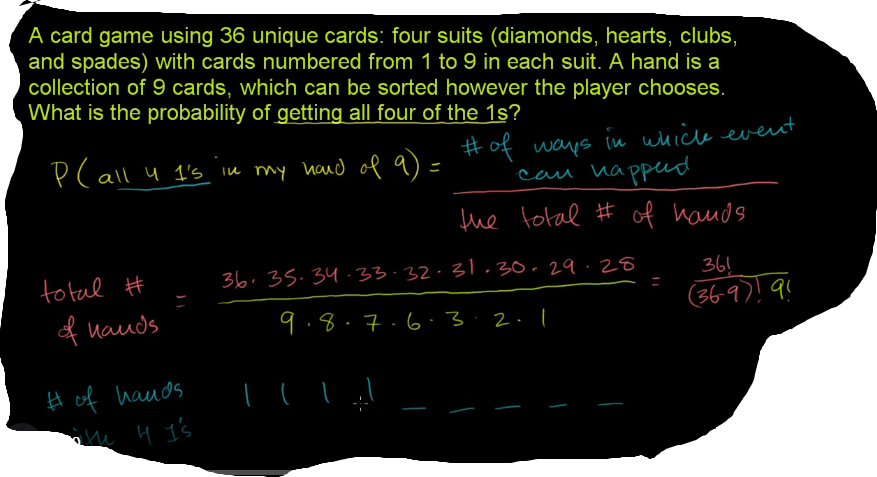 A card game using 36 unique cards: four suits (diamonds, hearts, clubs,
and spades) with cards numbered from 1 to 9 in each suit. A hand is a
collection of 9 cards, which can be sorted however the player chooses.
What is the probability of getting all four of the 1s?
P(all 4 1's in my hand of 9) = # of ways in which event can happen / the total # of hands
total # of hands = 36·35·34·33·32·31·30·29·28 / 9·8·7·6·3·2·1 = 36! / (36-9)! 9!
# of hands 1 1 1 1 _ _ _ _ _
4 1's